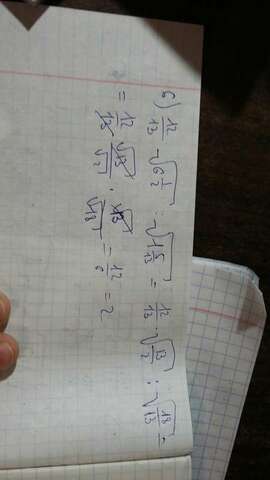 б) 12/13 √(6 1/2) : √(1 5/13) = 12/13 √(13/2) : √(18/13) =
= 12/13 √13/√2 · √13/√18 = 12/6 = 2